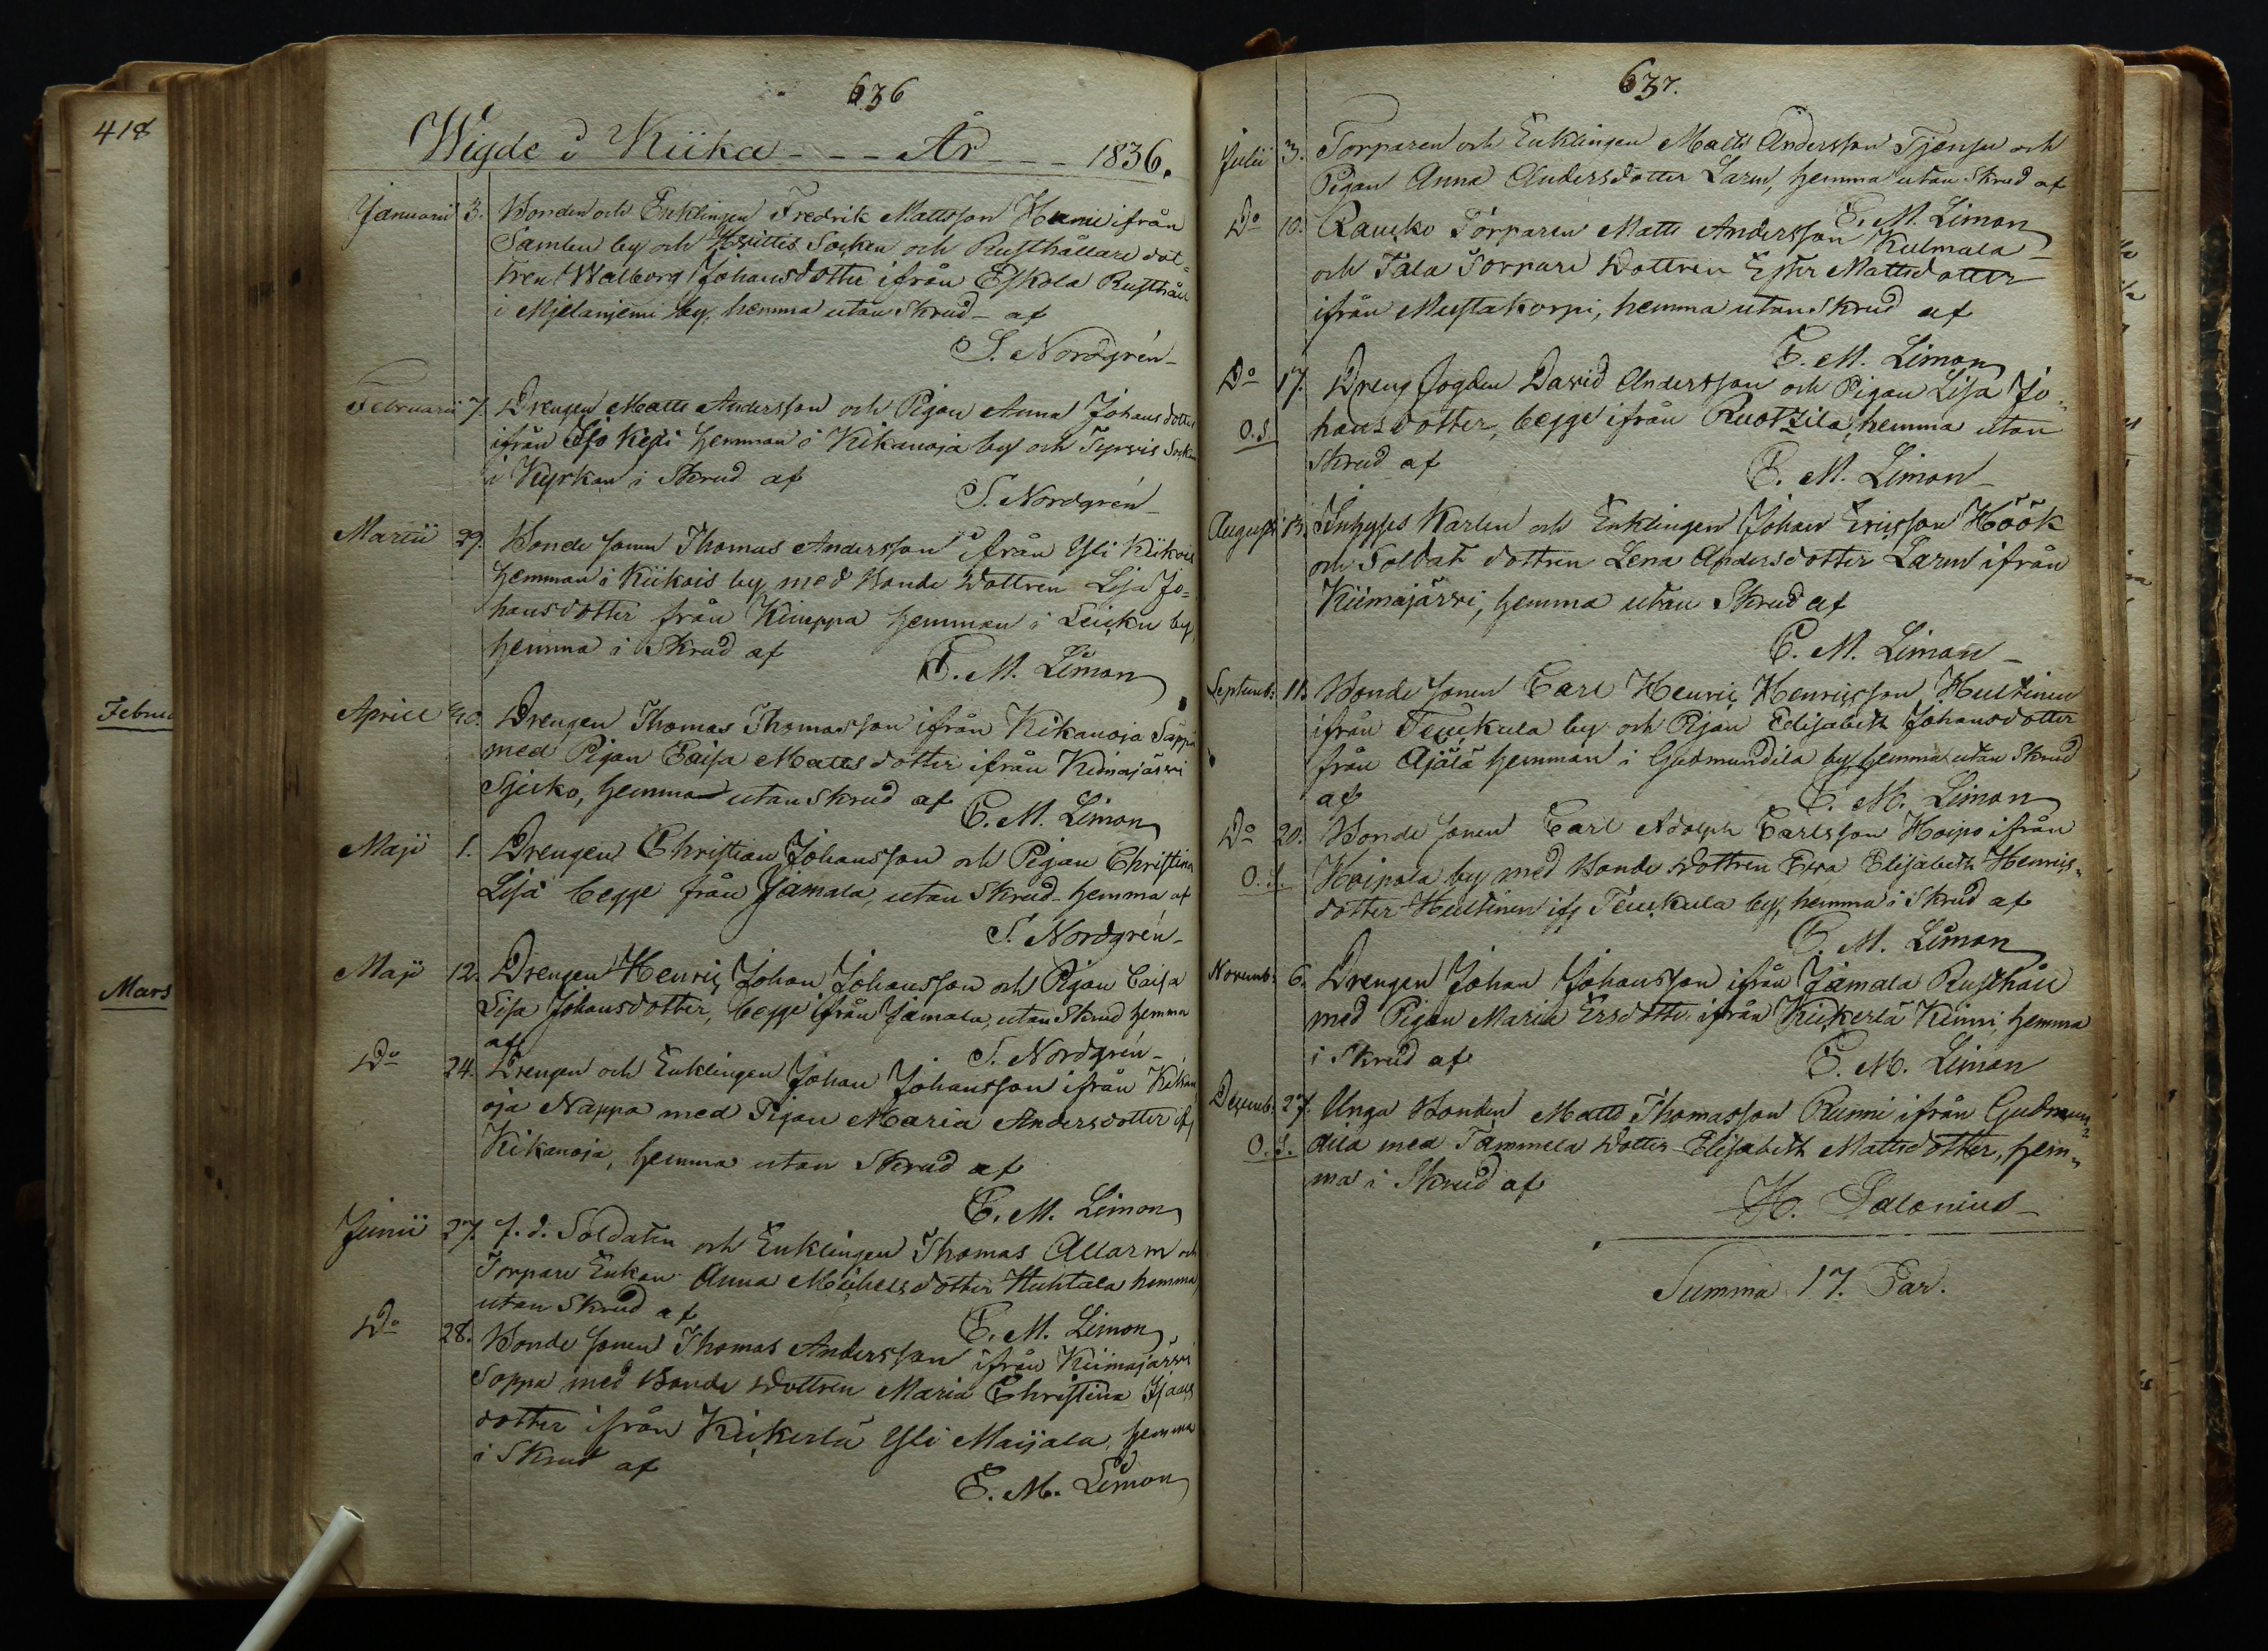 418
Februa
Mars
636
Wigde i Kiika - - - År - - - 1836.
Januarii 3. Bonden och Enklingen Fredrik Mattsson ifrån
by och Huittis Socken och Rusthållare dot-
tren Walborg Johansdotter ifrån Eskola Rusthåll
i by, hemma utan Skrud - af
S. Nordgrén
Februarii 7. Drengen Matts Andersson och Pigan Anna Johansdotter
ifrån hemman i Kikanoja by och Tyrvis Socken
i Kyrkan i Skrud af
S. Nordgrén
Martii 29. Bonde sonen Thomas Andersson ifrån Yli Kiikois
hemman i Kiikois by, med Bonde Dottren Lisa Jo-
hansdotter från hemman i by,
hemma i Skrud af
E. M. Limon
Aprill 10. Drengen Thomas Thomasson ifrån Kikanoja
med Pigan Caisa Mattsdotter ifrån Kimajärvi
hemma utan Skrud af
E. M. Limon
Maji 1. Drengen Christian Johansson och Pigan Christina
Lisa begge från Jamala, utan Skrud - hemma af
S. Nordgrén
Maji 12. Drengen Henric Johan Johansson och Pigan Caisa
Lisa Johansdotter, begge ifrån Jamala, utan Skrud hemma
af
S. Nordgrén
Do 24. Drengen och Enklingen Johan Johansson ifrån Kikan
oja Nappa med Pigan Maria Andersdotter ifr
Kikanoja, hemma utan Skrud af
E. M. Limon
Junii 27. f. d. Soldaten och Enklingen Thomas Allarm och
Torpare Enkan Anna Michelsdotter Huhtala hemma
utan Skrud af
E. M. Limon
Do 28. Bonde sonen Thomas Andersson ifrån Kiimajärvi
Soppa med Bonde Dottren Maria Christina Isaacs
dotter ifrån Kiikerlä Yli Maijala, hemma
i Skrud af
E. M. Limon
637.
Julii 3. Torparen och Enklingen Matts Andersson och
Pigan Anna Andersdotter Larm, hemma utan Skrud af
E. M. Limon
Do 10. Raucko Torparen Matts Andersson Kulmala
och Tala Torpare Dottren Ester Mattsdotter
ifrån Mustakorpi, hemma utan Skrud af
E. M. Limon
Do 17. Dreng fogden David Andersson och Pigan Lisa Jo-
O.S. hansdotter, begge ifrån Ruotzila, hemma utan
Skrud af
E. M. Limon
Augusti 13. Inhyses Karlen och Enklingen Johan Ericsson Höök
och Soldat dottren Lena Andersdotter Larm ifrån
Kiimajärvi, hemma utan Skrud af
E. M. Limon
Septemb: 11. Bonde sonen Carl Henric Henricsson Hultinen
ifrån Teuckula by och Pigan Elisabeth Johansdotter
från Ajälä hemman i Gudmundila by, hemma utan Skrud
af
E. M. Limon
Do 20. Bonde sonen Carl Adolph Carlsson Hoipo ifrån
O.S. Hoipola by med Bonde Dottren Eva Elisabeth Henrics-
dotter Hultinen ifr Teuckula by, hemma i Skrud af
E. M. Limon
Novemb: 6. Drengen Johan Johansson ifrån Jamala Rusthåll
med Pigan Maria Ersdotter ifrån Kiikerlä Kinni, hemma
i Skrud af
E. M. Limon
Decemb: 27. Unga Bonden Matts Thomasson Runni ifrån Gudmun-
O.S. dila med Tammela Dotter Elisabeth Mattsdotter, hem-
ma i Skrud af
H. Salonius
Summa 17. Par.